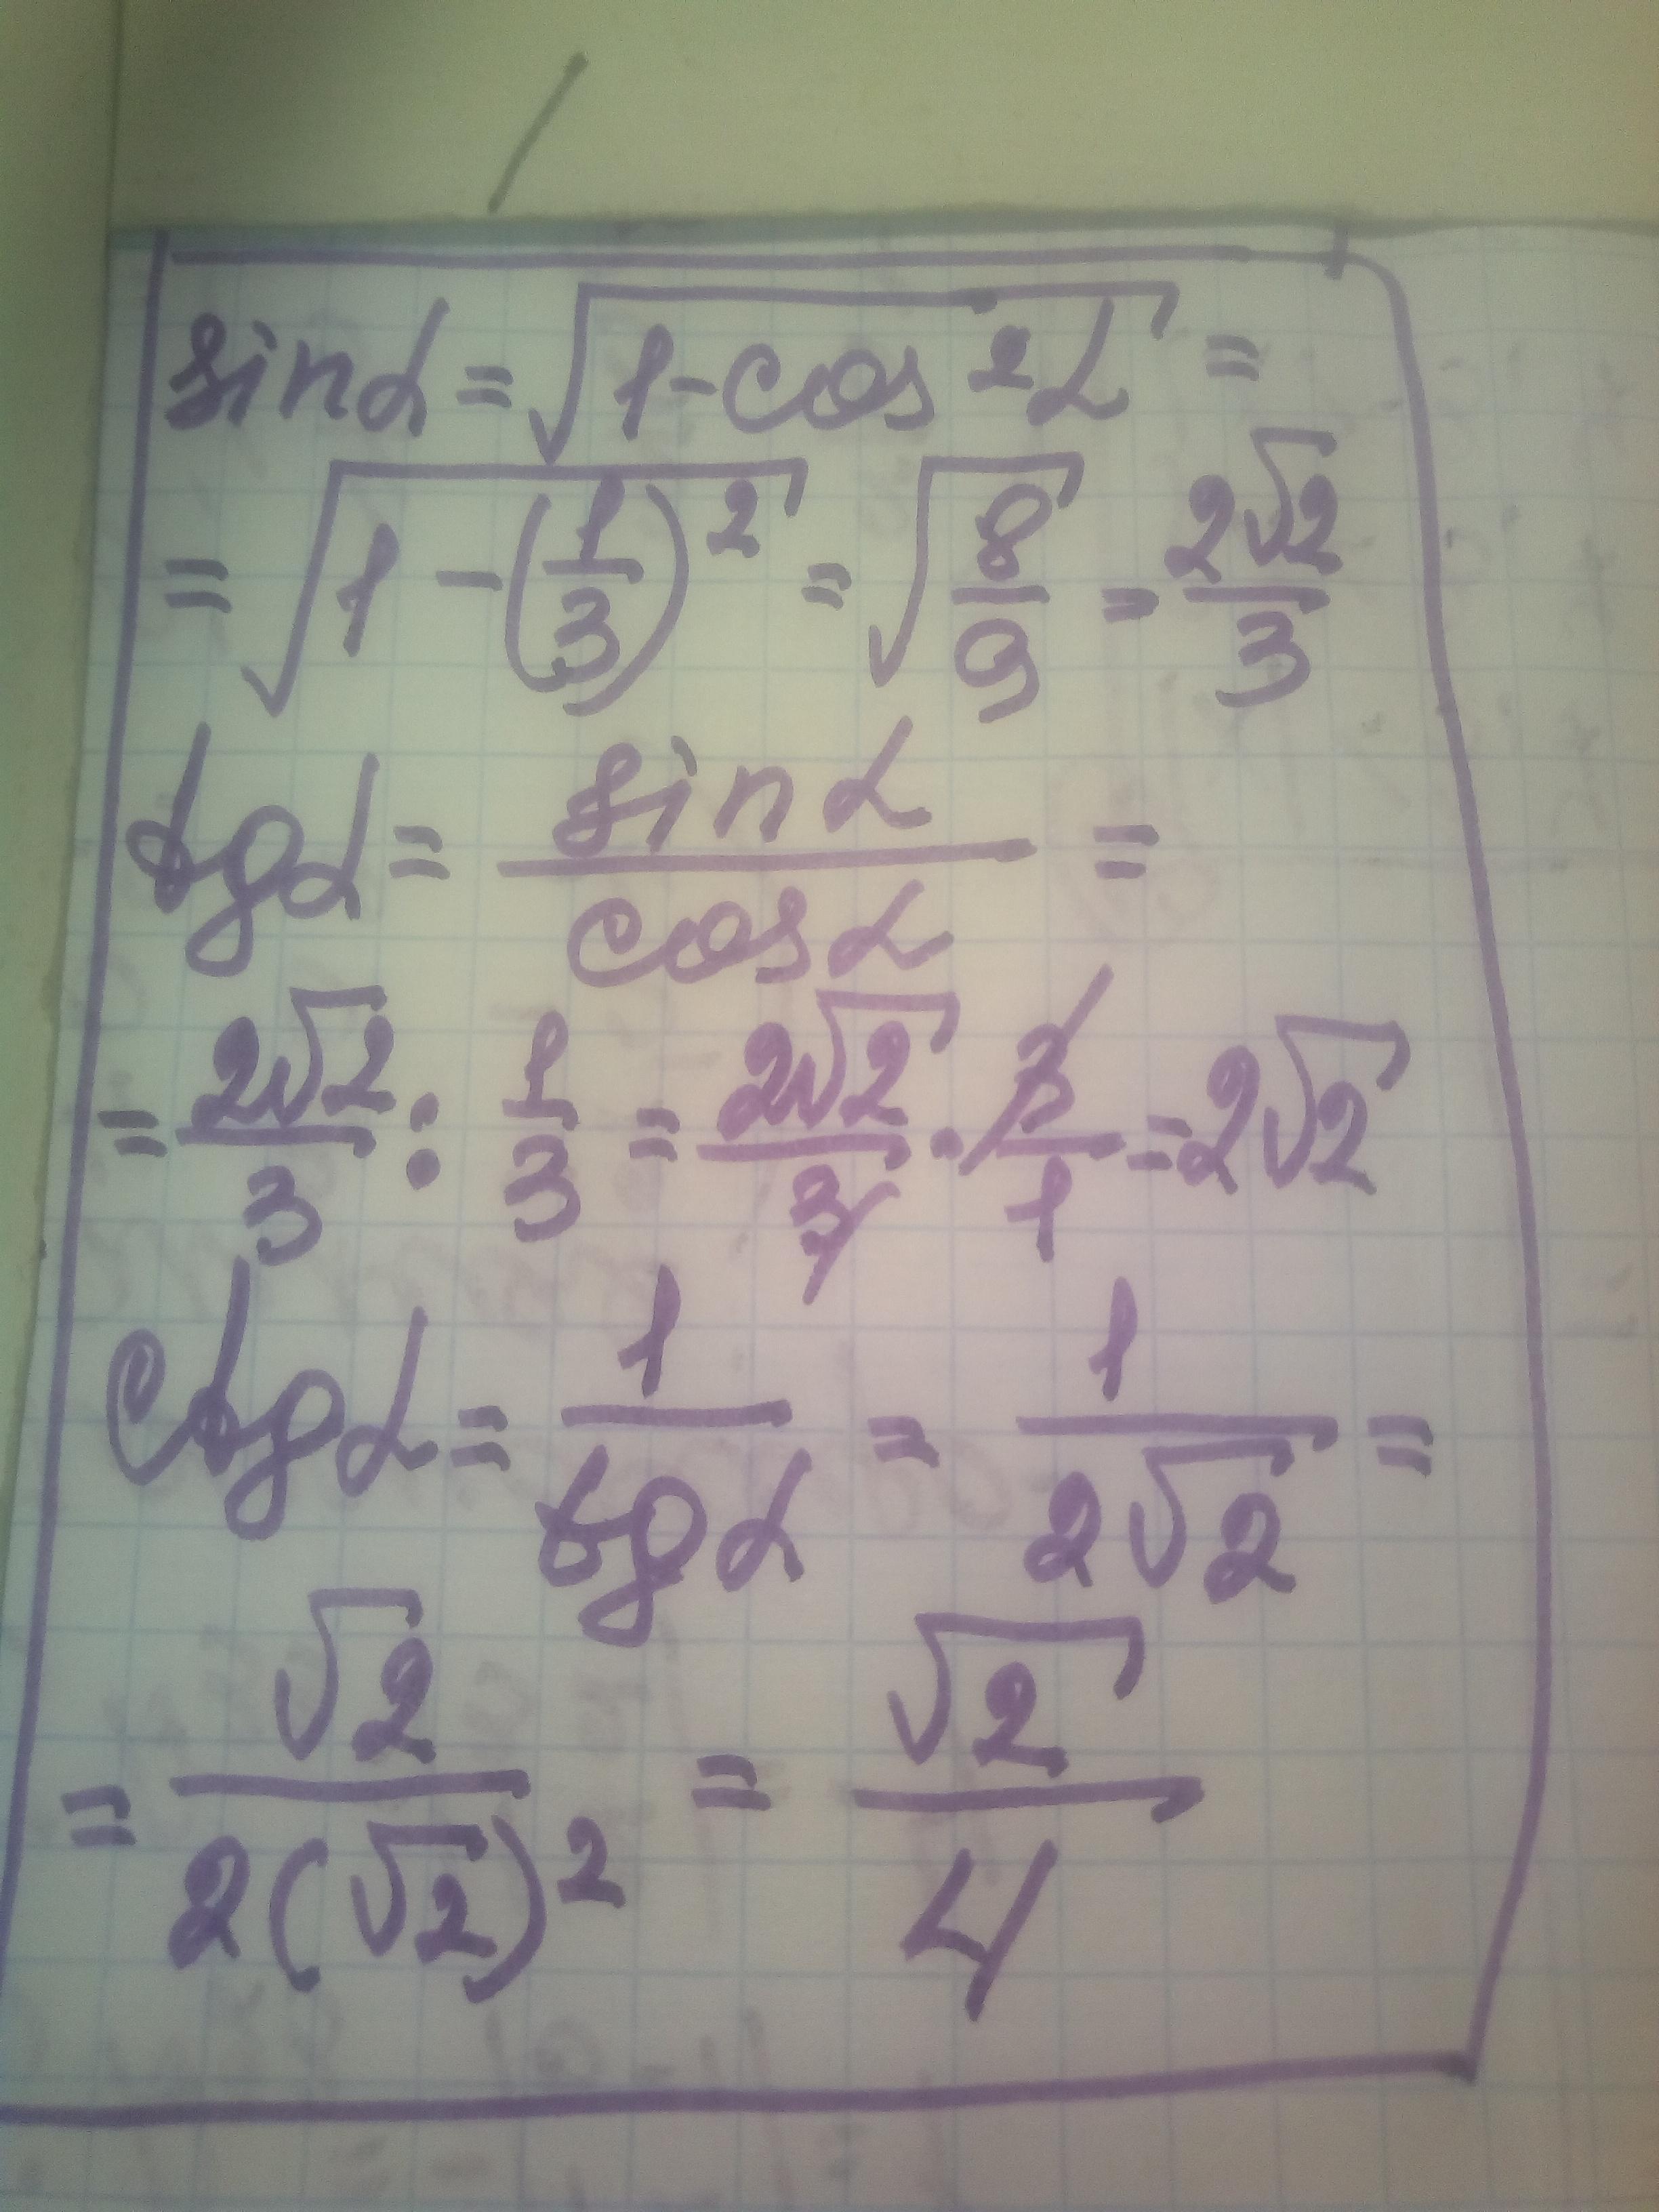 sinα = √(1-cos²α) =
= √(1 - (1/3)²) = √(8/9) = 2√2/3
tgα = sinα/cosα =
= 2√2/3 : 1/3 = 2√2/3 · 3/1 = 2√2
ctgα = 1/tgα = 1/(2√2) =
= √2/(2(√2)²) = √2/4